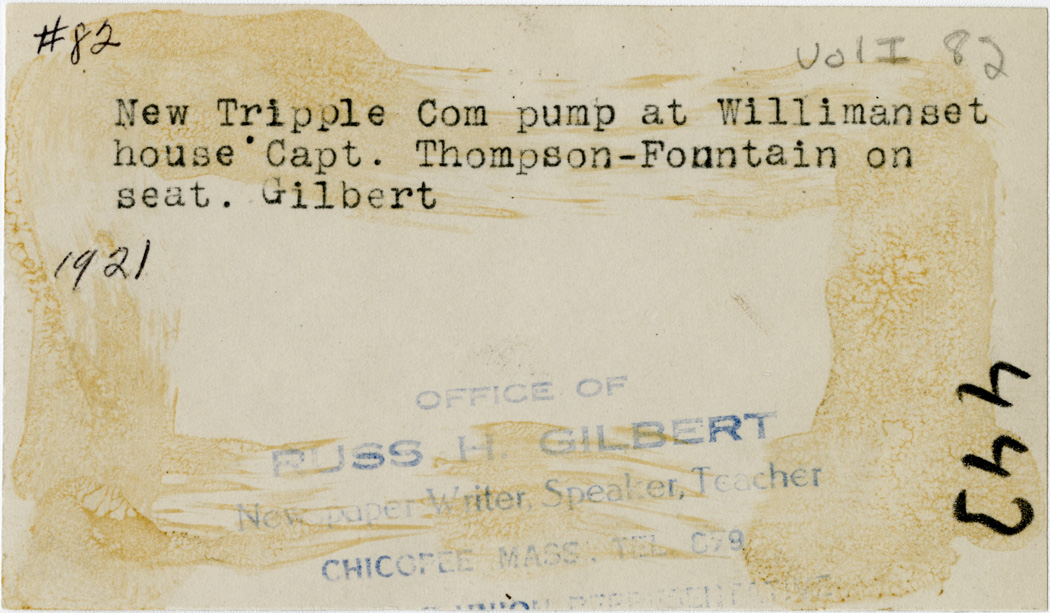 #82
Vol I 82
New Tripple Com pump at Willimanset
house Capt. Thompson-Fountain on
seat. Gilbert
1921
OFFICE OF
RUSS H. GILBERT
Newspaper Writer, Speaker, Teacher
CHICOPEE MASS. TEL 879
UNION
443